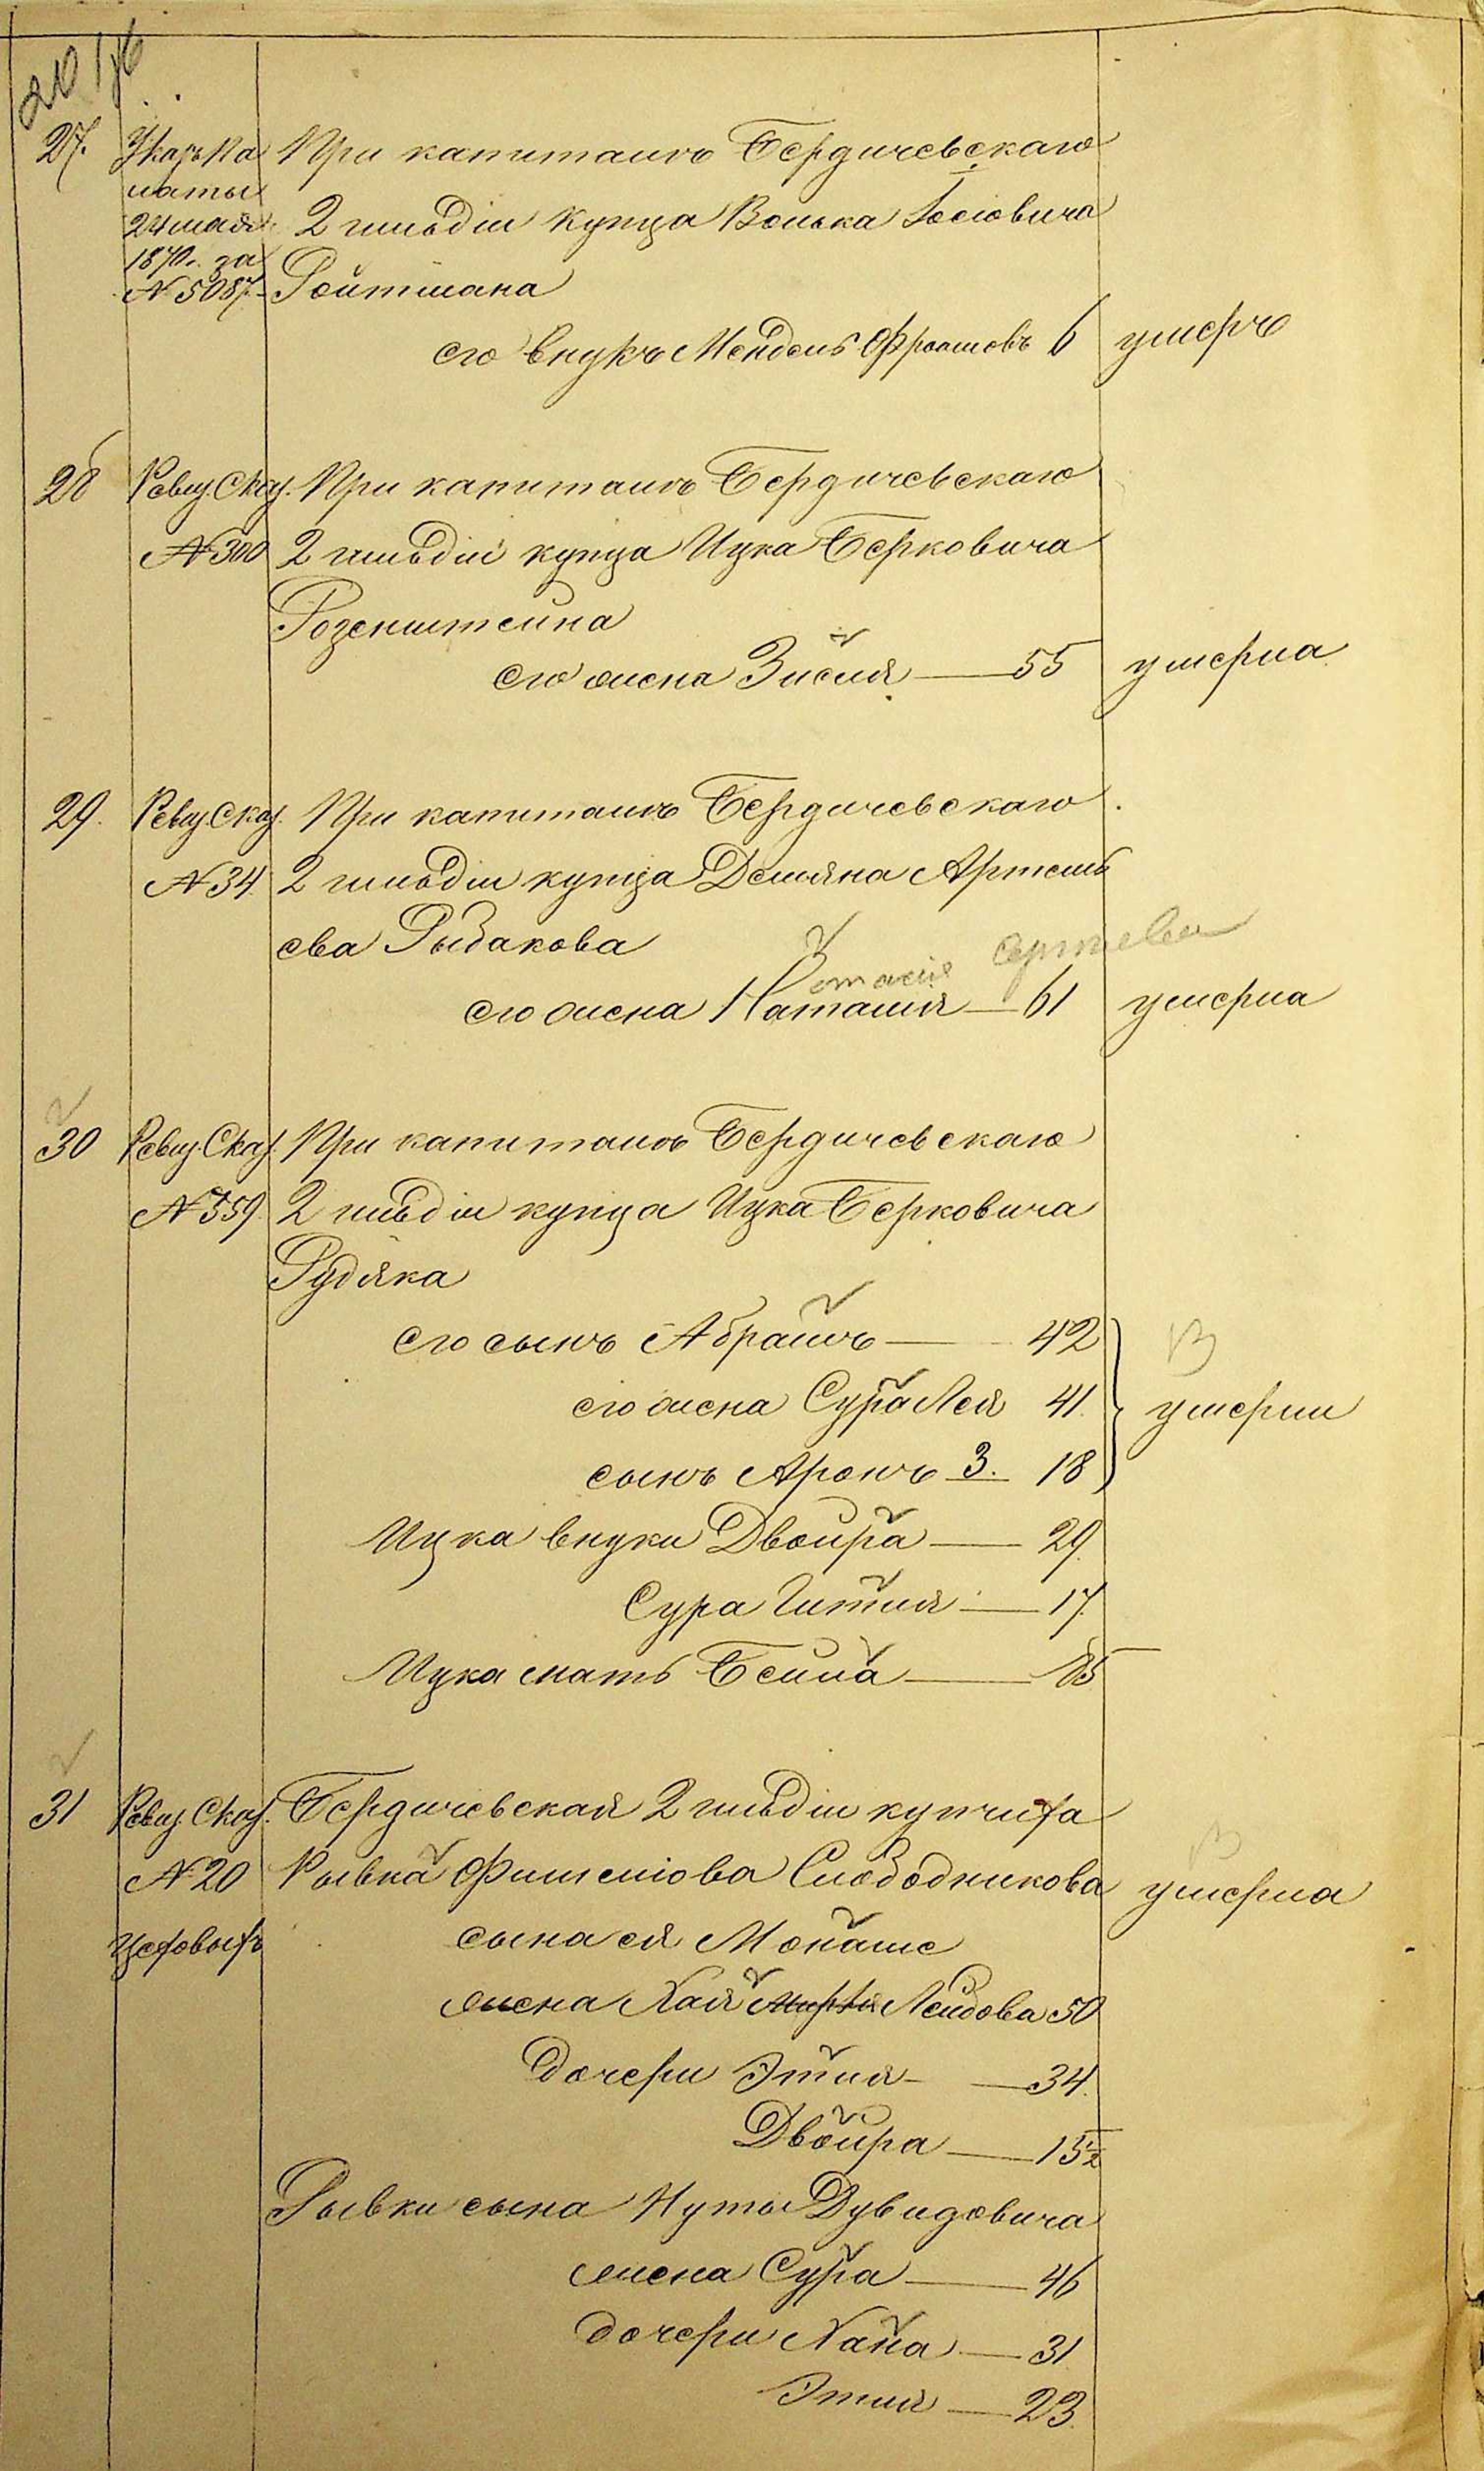 27. Указъ Па При капиталѣ Бердичевскаго
латы
24 мая 2 гильдіи купца Волька Іосіовича
1870 г. за
№ 5087. Ройтмана
его внукъ Мендель Фроимовъ 6 умеръ
28 Ревиз. Сказ. При капиталѣ Бердичевскаго
№ 300 2 гильдіи купца Ицка Берковича
Розенштейна
его жена Зисля — 55 умерла
29. Ревиз. Сказ. При капиталѣ Бердичевскаго
№ 34. 2 гильдіи купца Демьяна Артемь
ева Рыбакова
его жена Наталія — 61 умерла
30 Ревиз. Сказ. При капиталѣ Бердичевскаго
№ 359. 2 гильдіи купца Ицка Берковича
Рудяка
его сынъ Абрамъ — 42
его жена Сура Лея 41. умерли
сынъ Аронъ 3. 18
Ицка внуки Двойра — 29.
Сура Гитля — 17.
Ицка мать Бейла — 85
31 Ревиз. Сказ. Бердичевская 2 гильдіи купчиха
№ 20 Рывка Фишеліова Слободникова умерла
цеховыхъ сына ея Монаше
жена Хая Лейбова 50
дочери Этля — 34.
Двойра — 15½
Рывки сына Нуты Дувидовича
жена Сура — 46
дочери Хана — 31
Этля — 23.